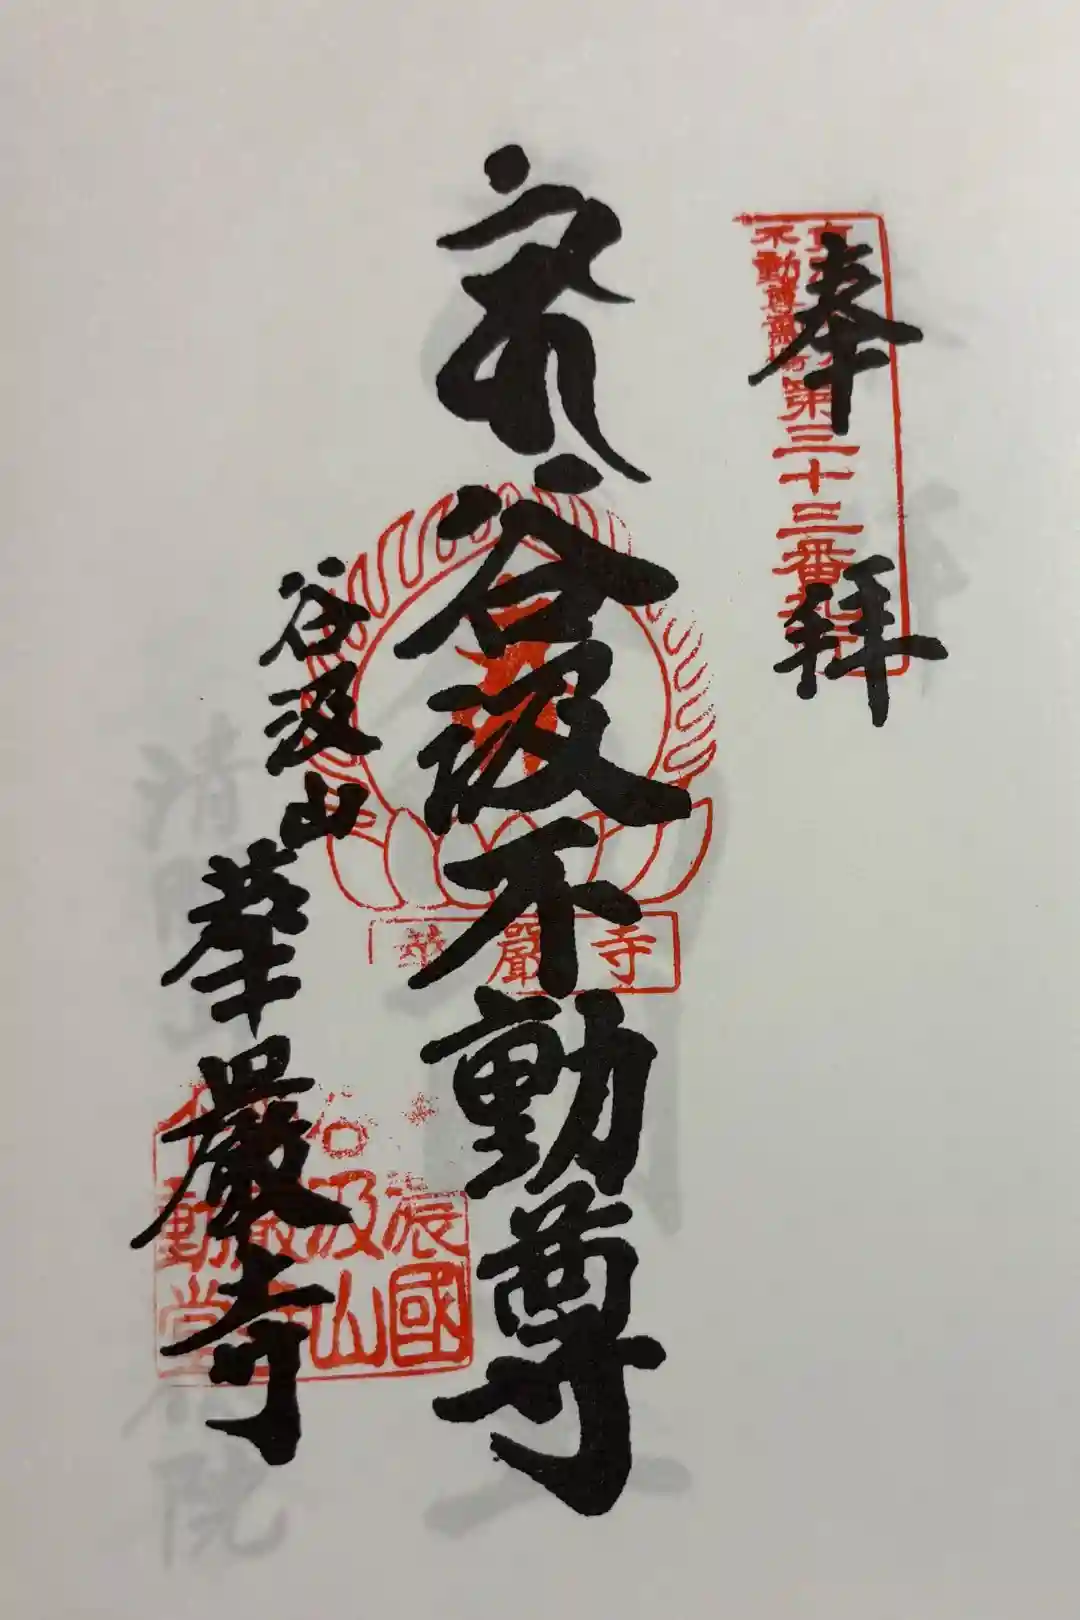 奉拝
不動尊霊場第三十三番
谷汲不動尊
谷汲山
華厳寺
華嚴寺
國
汲山
動堂